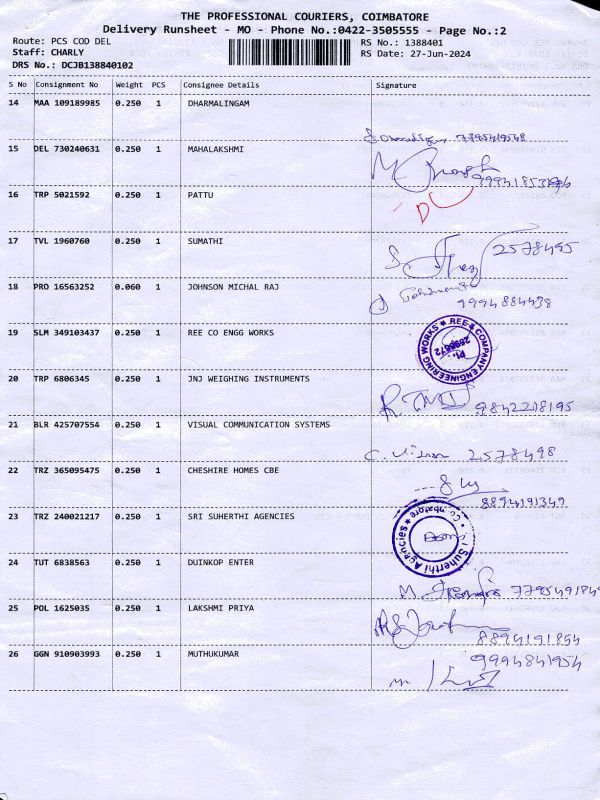 THE PROFESSIONAL COURIERS, COIMBATORE
Delivery Runsheet - MO - Phone No.:0422-3505555 - Page No.:2
Route: PCS COD DEL RS No.: 1388401
Staff: CHARLY RS Date: 27-Jun-2024
DRS No.: DCJB138840102
S No Consignment No Weight PCS Consignee Details Signature
14 MAA 109189985 0.250 1 DHARMALINGAM
15 DEL 730240631 0.250 1 MAHALAKSHMI
16 TRP 5021592 0.250 1 PATTU
D
17 TVL 1960760 0.250 1 SUMATHI 2578495
18 PRO 16563252 0.060 1 JOHNSON MICHAL RAJ
9994884438
19 SLM 349103437 0.250 1 REE CO ENGG WORKS
REE COMPANY ENGINEERING WORKS
20 TRP 6806345 0.250 1 JNJ WEIGHING INSTRUMENTS
9842218195
21 BLR 425707554 0.250 1 VISUAL COMMUNICATION SYSTEMS
2578498
22 TRZ 365095475 0.250 1 CHESHIRE HOMES CBE
8894191349
23 TRZ 240021217 0.250 1 SRI SUHERTHI AGENCIES
Suherthi Agencies
24 TUT 6838563 0.250 1 DUINKOP ENTER
25 POL 1625035 0.250 1 LAKSHMI PRIYA
8894191854
26 GGN 910903993 0.250 1 MUTHUKUMAR 9994841954